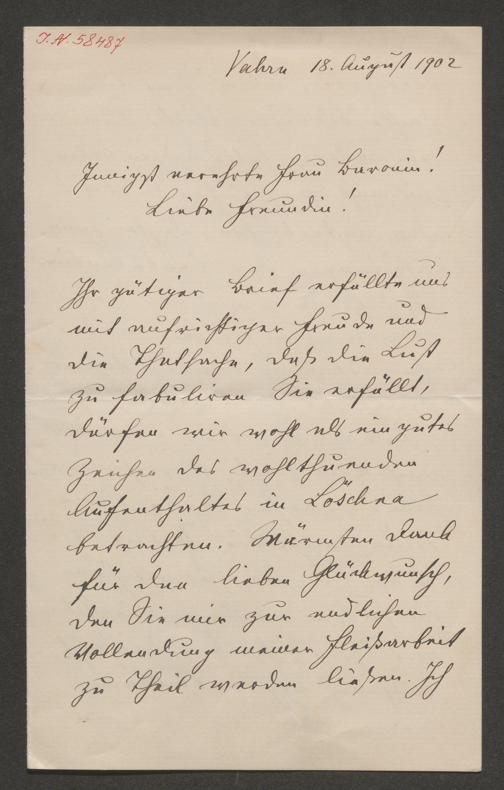 I. N. 58487
Vahrn 18. August 1902
Innigst verehrte Frau Baronin!
Liebe Freundin!
Ihr gütiger Brief erfüllte uns
mit aufrichtiger Freude und
die Thatsache, daß die Lust
zu fabuliren Sie erfüllt,
dürfen wir wohl als ein gutes
Zeichen des wohlthuenden
Aufenthaltes in Löschna
betrachten. Wärmsten Dank
für den lieben Glückwunsch,
den Sie mir zur endlichen
Vollendung meiner Fleißarbeit
zu Theil werden ließen. Ich